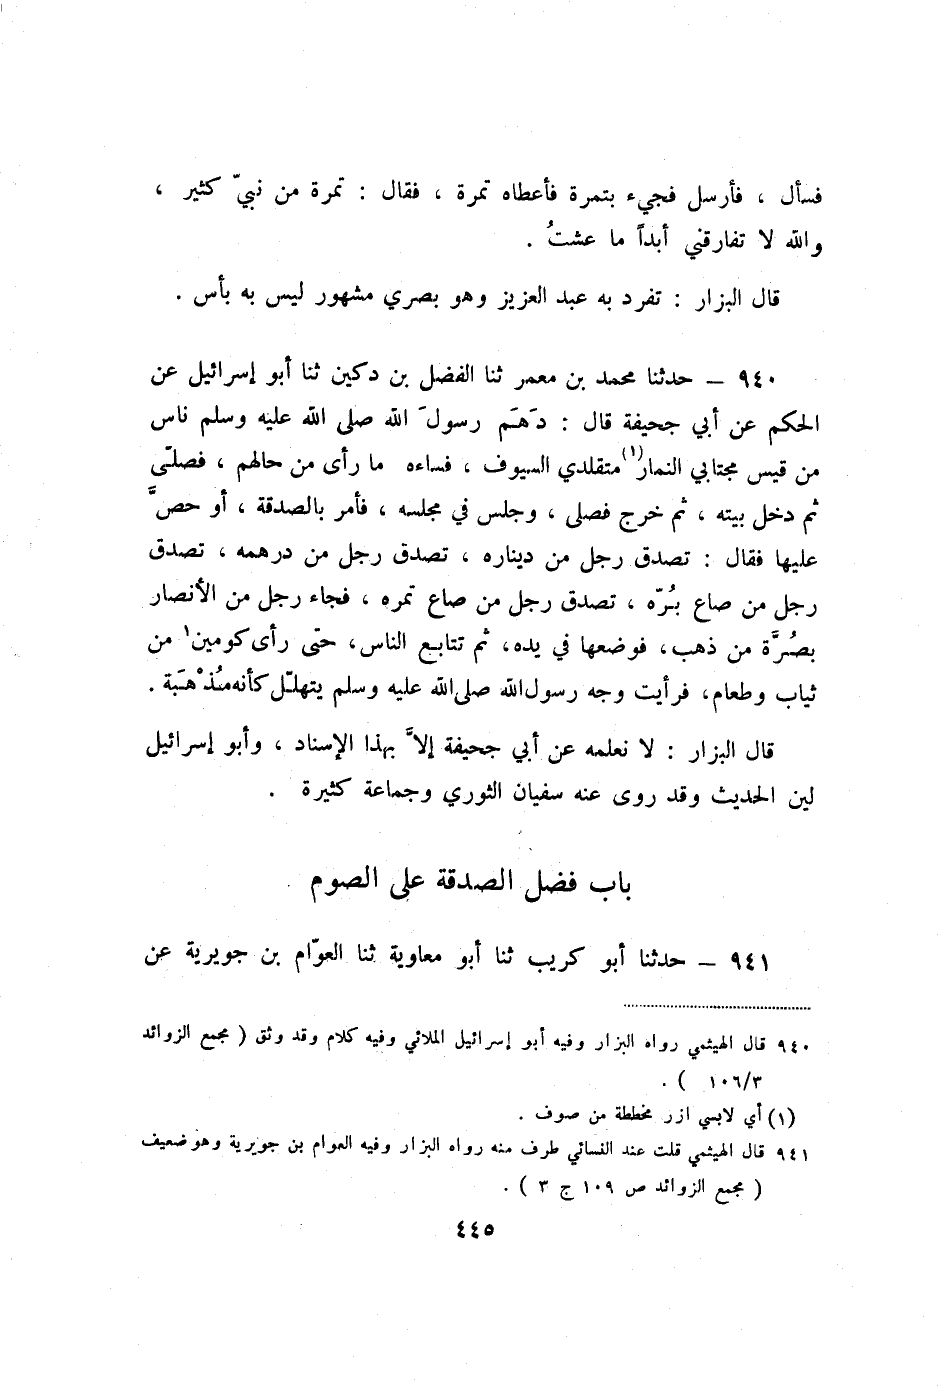 فسأل ، فأرسل فجيء بتمرة فأعطاه تمرة ، فقال : تمرة من نبيّ كثير ،
والله لا تفارقني أبداً ما عشتُ .
قال البزار : تفرد به عبد العزيز وهو بصري مشهور ليس به بأس .
٩٤٠ – حدثنا محمد بن معمر ثنا الفضل بن دكين ثنا أبو إسرائيل عن
الحكم عن أبي جحيفة قال : دَهَم رسولَ الله صلى الله عليه وسلم ناس
من قيس مجتابي النمار(١) متقلدي السيوف ، فساءه ما رأى من حالهم ، فصلّى
ثم دخل بيته ، ثم خرج فصلى ، وجلس في مجلسه ، فأمر بالصدقة ، أو حصَّ
عليها فقال : تصدق رجل من ديناره ، تصدق رجل من درهمه ، تصدق
رجل من صاع بُرّه ، تصدق رجل من صاع تمره ، فجاء رجل من الأنصار
بصُرَّة من ذهب، فوضعها في يده، ثم تتابع الناس، حتى رأى كومين١ من
ثياب وطعام، فرأيت وجه رسول الله صلى الله عليه وسلم يتهلّل كأنه مُذْهَبة .
قال البزار : لا نعلمه عن أبي جحيفة إلاَّ بهذا الإسناد ، وأبو إسرائيل
لين الحديث وقد روى عنه سفيان الثوري وجماعة كثيرة .
باب فضل الصدقة على الصوم
٩٤١ – حدثنا أبو كريب ثنا أبو معاوية ثنا العوّام بن جويرية عن
٩٤٠ قال الهيثمي رواه البزار وفيه أبو إسرائيل الملائي وفيه كلام وقد وثق ( مجمع الزوائد
١٠٦/٣ ) .
(١) أي لابسي ازر مخططة من صوف .
٩٤١ قال الهيثمي قلت عند النسائي طرف منه رواه البزار وفيه العوام بن جويرية وهو ضعيف
( مجمع الزوائد ص ١٠٩ ج ٣ ) .
٤٤٥